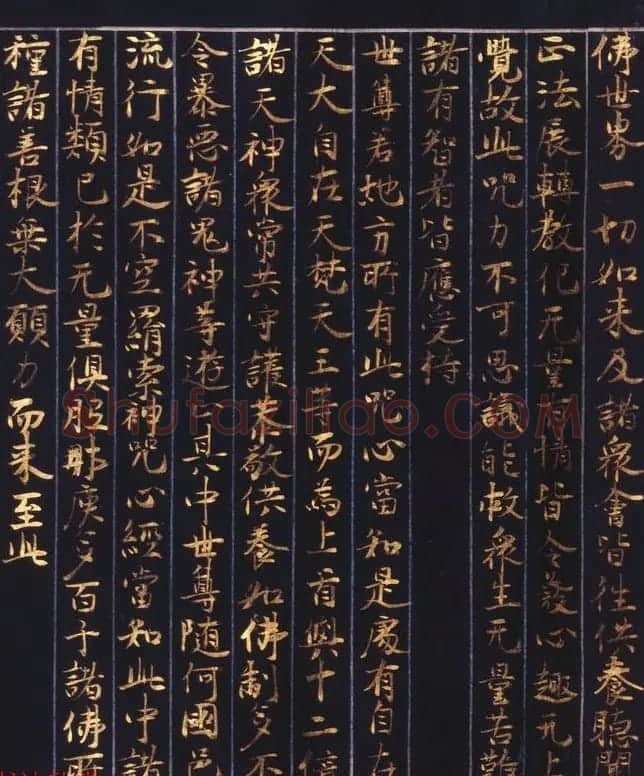 佛世界一切如来及諸衆會皆往供養聽聞
正法展轉教化无量有情皆令發心趣无上
覺故此呪力不可思議能救衆生无量苦難
諸有智者皆應受持
世尊若地方所有此呪心當知是處有自在
天大自在天梵天王等而為上首與十二倍
諸天神衆常共守護恭敬供養如佛制多不
令暴惡諸鬼神等遊止其中世尊隨何國邑
流行如是不空羂索神呪心經當知此中諸
有情類已於无量俱胝那庾多百千諸佛所
種諸善根乗大願力而来至此
Shufaziliao.COM